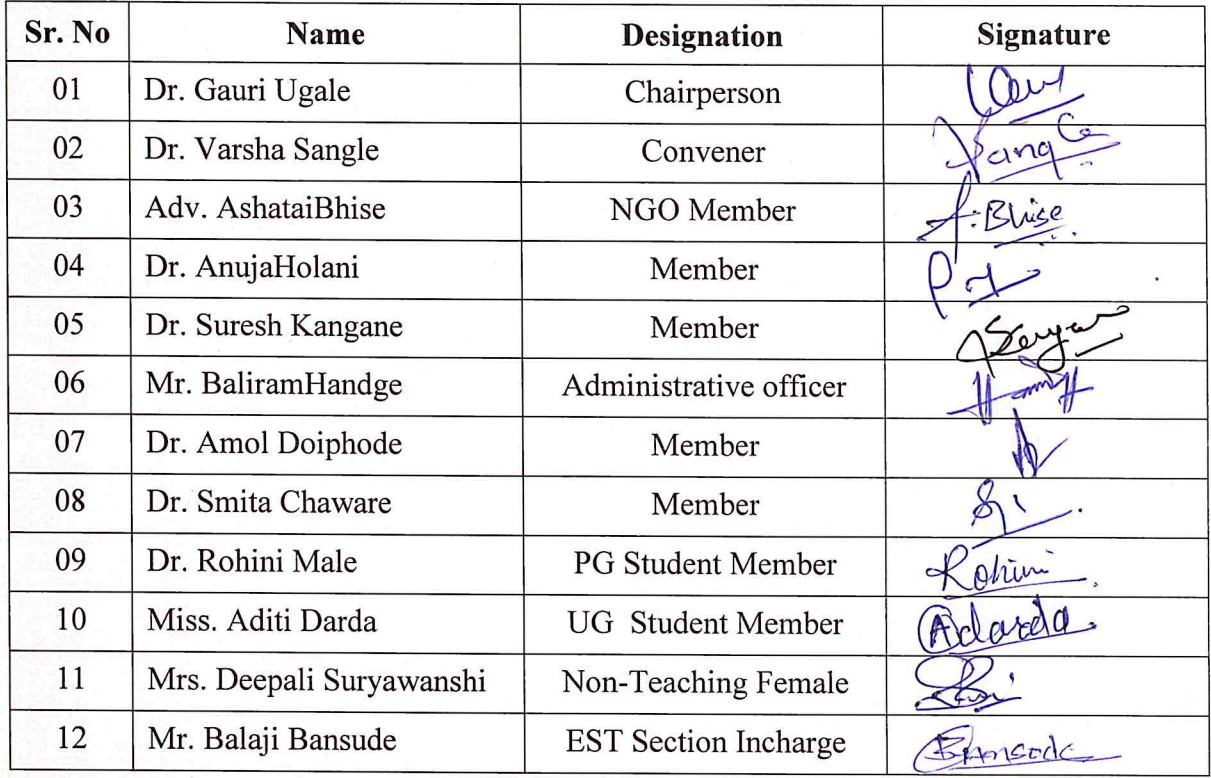 Sr. No Name Designation Signature
01 Dr. Gauri Ugale Chairperson
02 Dr. Varsha Sangle Convener
03 Adv. AshataiBhise NGO Member A. Bhise
04 Dr. AnujaHolani Member
05 Dr. Suresh Kangane Member
06 Mr. BaliramHandge Administrative officer
07 Dr. Amol Doiphode Member
08 Dr. Smita Chaware Member
09 Dr. Rohini Male PG Student Member Rohini
10 Miss. Aditi Darda UG Student Member Adarda
11 Mrs. Deepali Suryawanshi Non-Teaching Female
12 Mr. Balaji Bansude EST Section Incharge